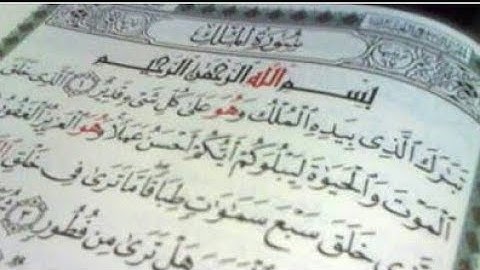 سُورَةُ المُلْكِ
بِسْمِ اللَّهِ الرَّحْمَٰنِ الرَّحِيمِ
تَبَارَكَ الَّذِي بِيَدِهِ الْمُلْكُ وَهُوَ عَلَىٰ كُلِّ شَيْءٍ قَدِيرٌ ١ الَّذِي خَلَقَ
الْمَوْتَ وَالْحَيَاةَ لِيَبْلُوَكُمْ أَيُّكُمْ أَحْسَنُ عَمَلًا وَهُوَ الْعَزِيزُ الْغَفُورُ
خَلَقَ سَبْعَ سَمَاوَاتٍ طِبَاقًا مَا تَرَىٰ فِي خَلْقِ
تَرَىٰ مِنْ فُطُورٍ ٣
هَلْ